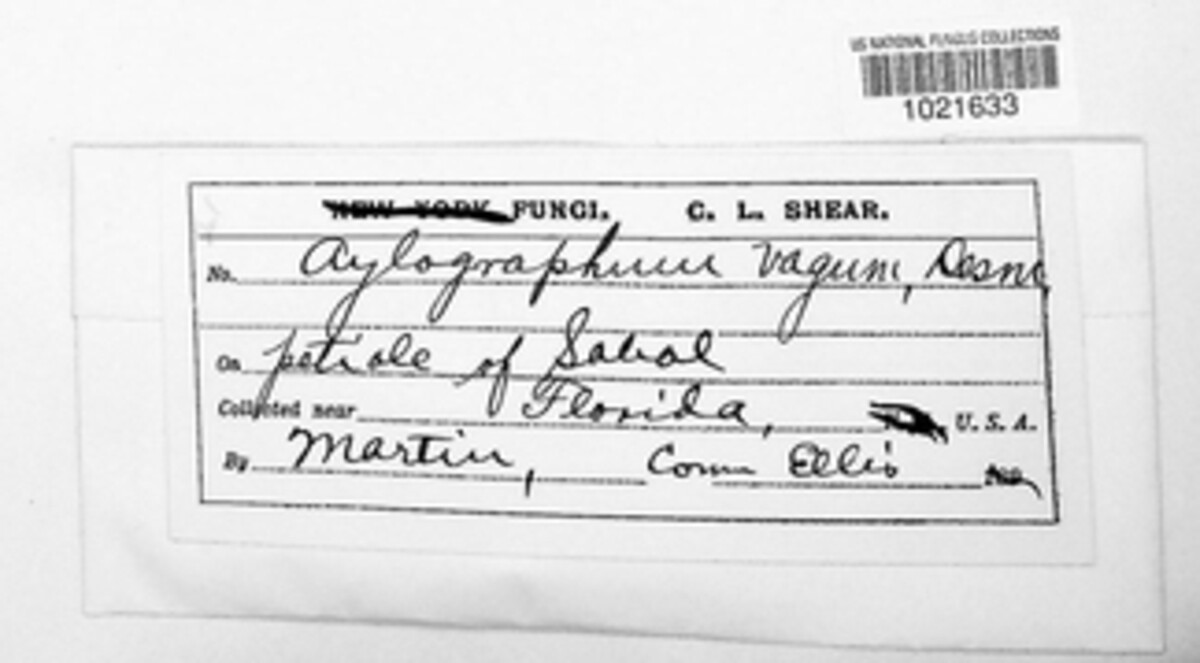 US NATIONAL FUNGUS COLLECTIONS
1021633
NEW YORK FUNGI. C. L. SHEAR.
No. Aylographum vagum, Desm
On petiole of Sabal
Collected near Florida, U. S. A.
By Martin, Comm Ellis